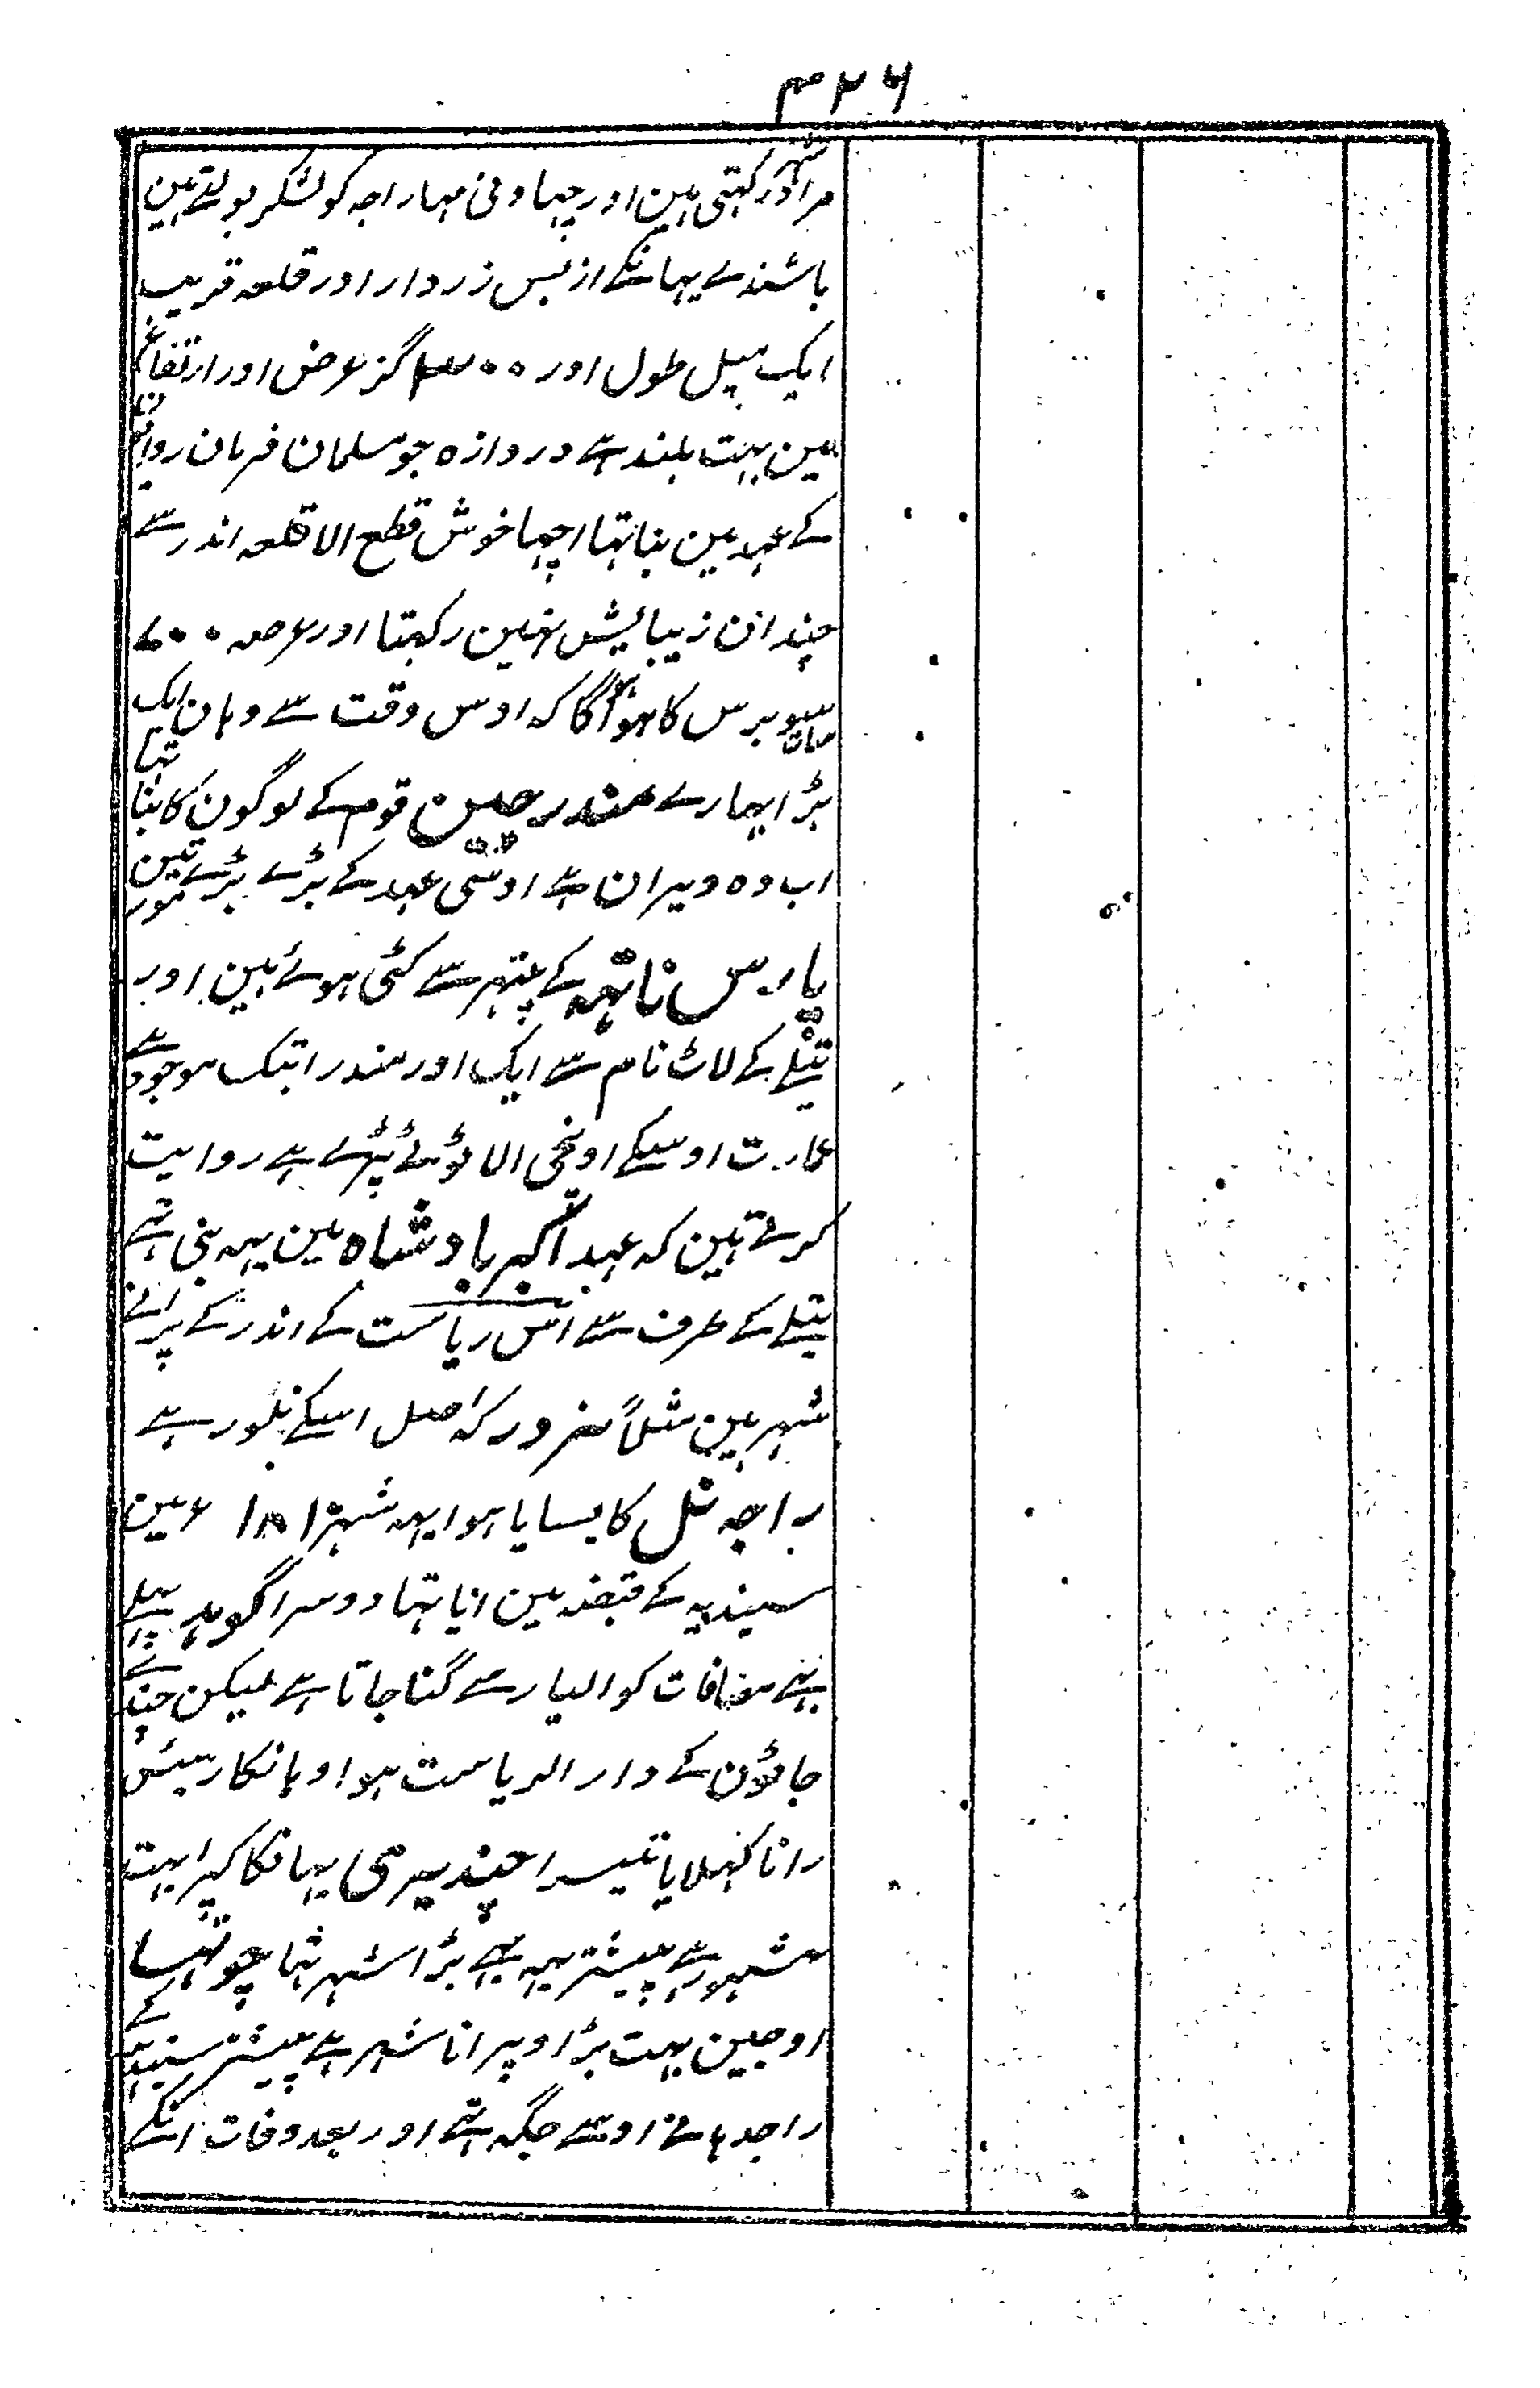 ۴۲۶
مرادر کہتی ہین اور چہاونی مہاراجہ کو لشکر بولتے ہین
باشندے یہانکے ازبس زردار اور قلعہ قریب
ایک میل طول اور ۳۰۰ گز عرض اور ارتفاع
مین بہت بلند ہے دروازہ جو مسلمان فرمان رواؤن
کے عہد مین بنا تہا اچہا خوش قطع الا قلعہ اندر سے
چندان زیبایش نہین رکہتا اور عرصہ ۷۰۰
سات سو برس کا ہوا ہوگا کہ اوس وقت سے وہان ایک
بڑا بہارے مندر جین قوم کے لوگون کا بنا تہا
اب وہ ویران ہے اوسی عہد کے بڑے بڑے تین مورتین
پارس ناتہہ کے پتہر سے کٹی ہوئے ہین اور
تیلے کے لاٹ نام سے ایک اور مندر ابتک موجود ہے
عمارت اوسیکے اونچی الا ٹوٹے پہڑے ہے روایت
کرتے ہین کہ عہد اکبر بادشاہ مین یہہ بنی تہے
تیلے کے طرف سے اس ریاست کے اندر کے پرانے
شہر مین مثلاً نرور کہ اصل اسکے نلور ہے
راجہ نل کا بسایا ہوا یہہ شہر ۱۸۱۰ء مین
سیندیہ کے قبضہ مین آیا تہا دوسرا گوہد پہلے
بہے مضافات گوالیار سے گنا جاتا ہے لیکن چندے
جاٹون کے دار الریاست ہوا وہانکا رئیس
رانا کہلایا تیسرا چندیری یہانکا کپڑا بہت
مشہور ہے پیشتر یہہ بہے بڑا شہر تہا چوتہا
اوجین بہت بڑا و پرانا شہر ہے پیشتر سیندیہ کے
راجدہانے اوسے جگہ تہے اور بعد وفات انکے